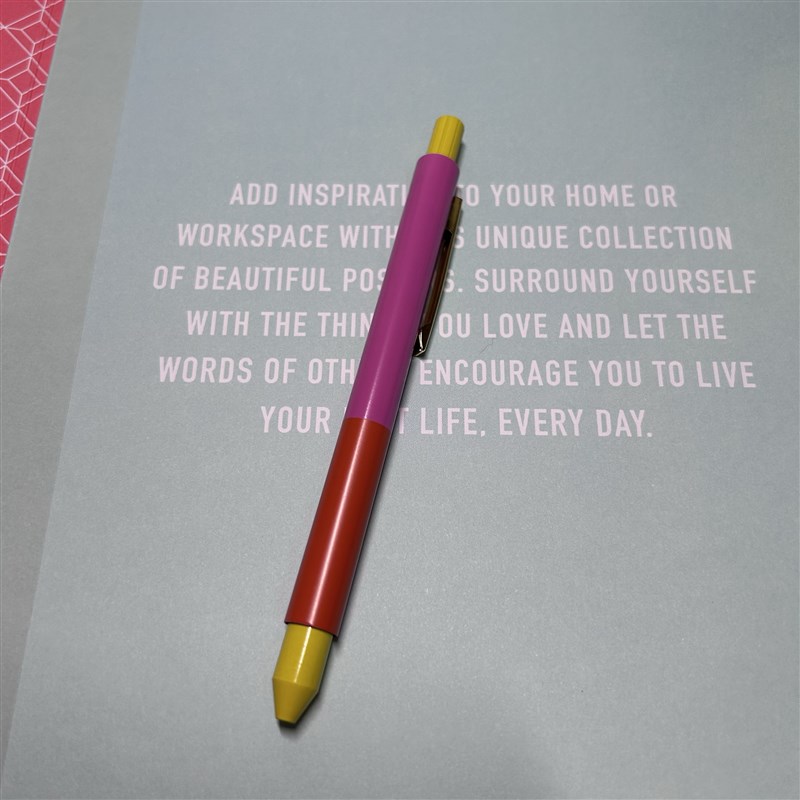 ADD INSPIRATI TO YOUR HOME OR
WORKSPACE WITH S UNIQUE COLLECTION
OF BEAUTIFUL POS S. SURROUND YOURSELF
WITH THE THIN OU LOVE AND LET THE
WORDS OF OTH ENCOURAGE YOU TO LIVE
YOUR T LIFE, EVERY DAY.